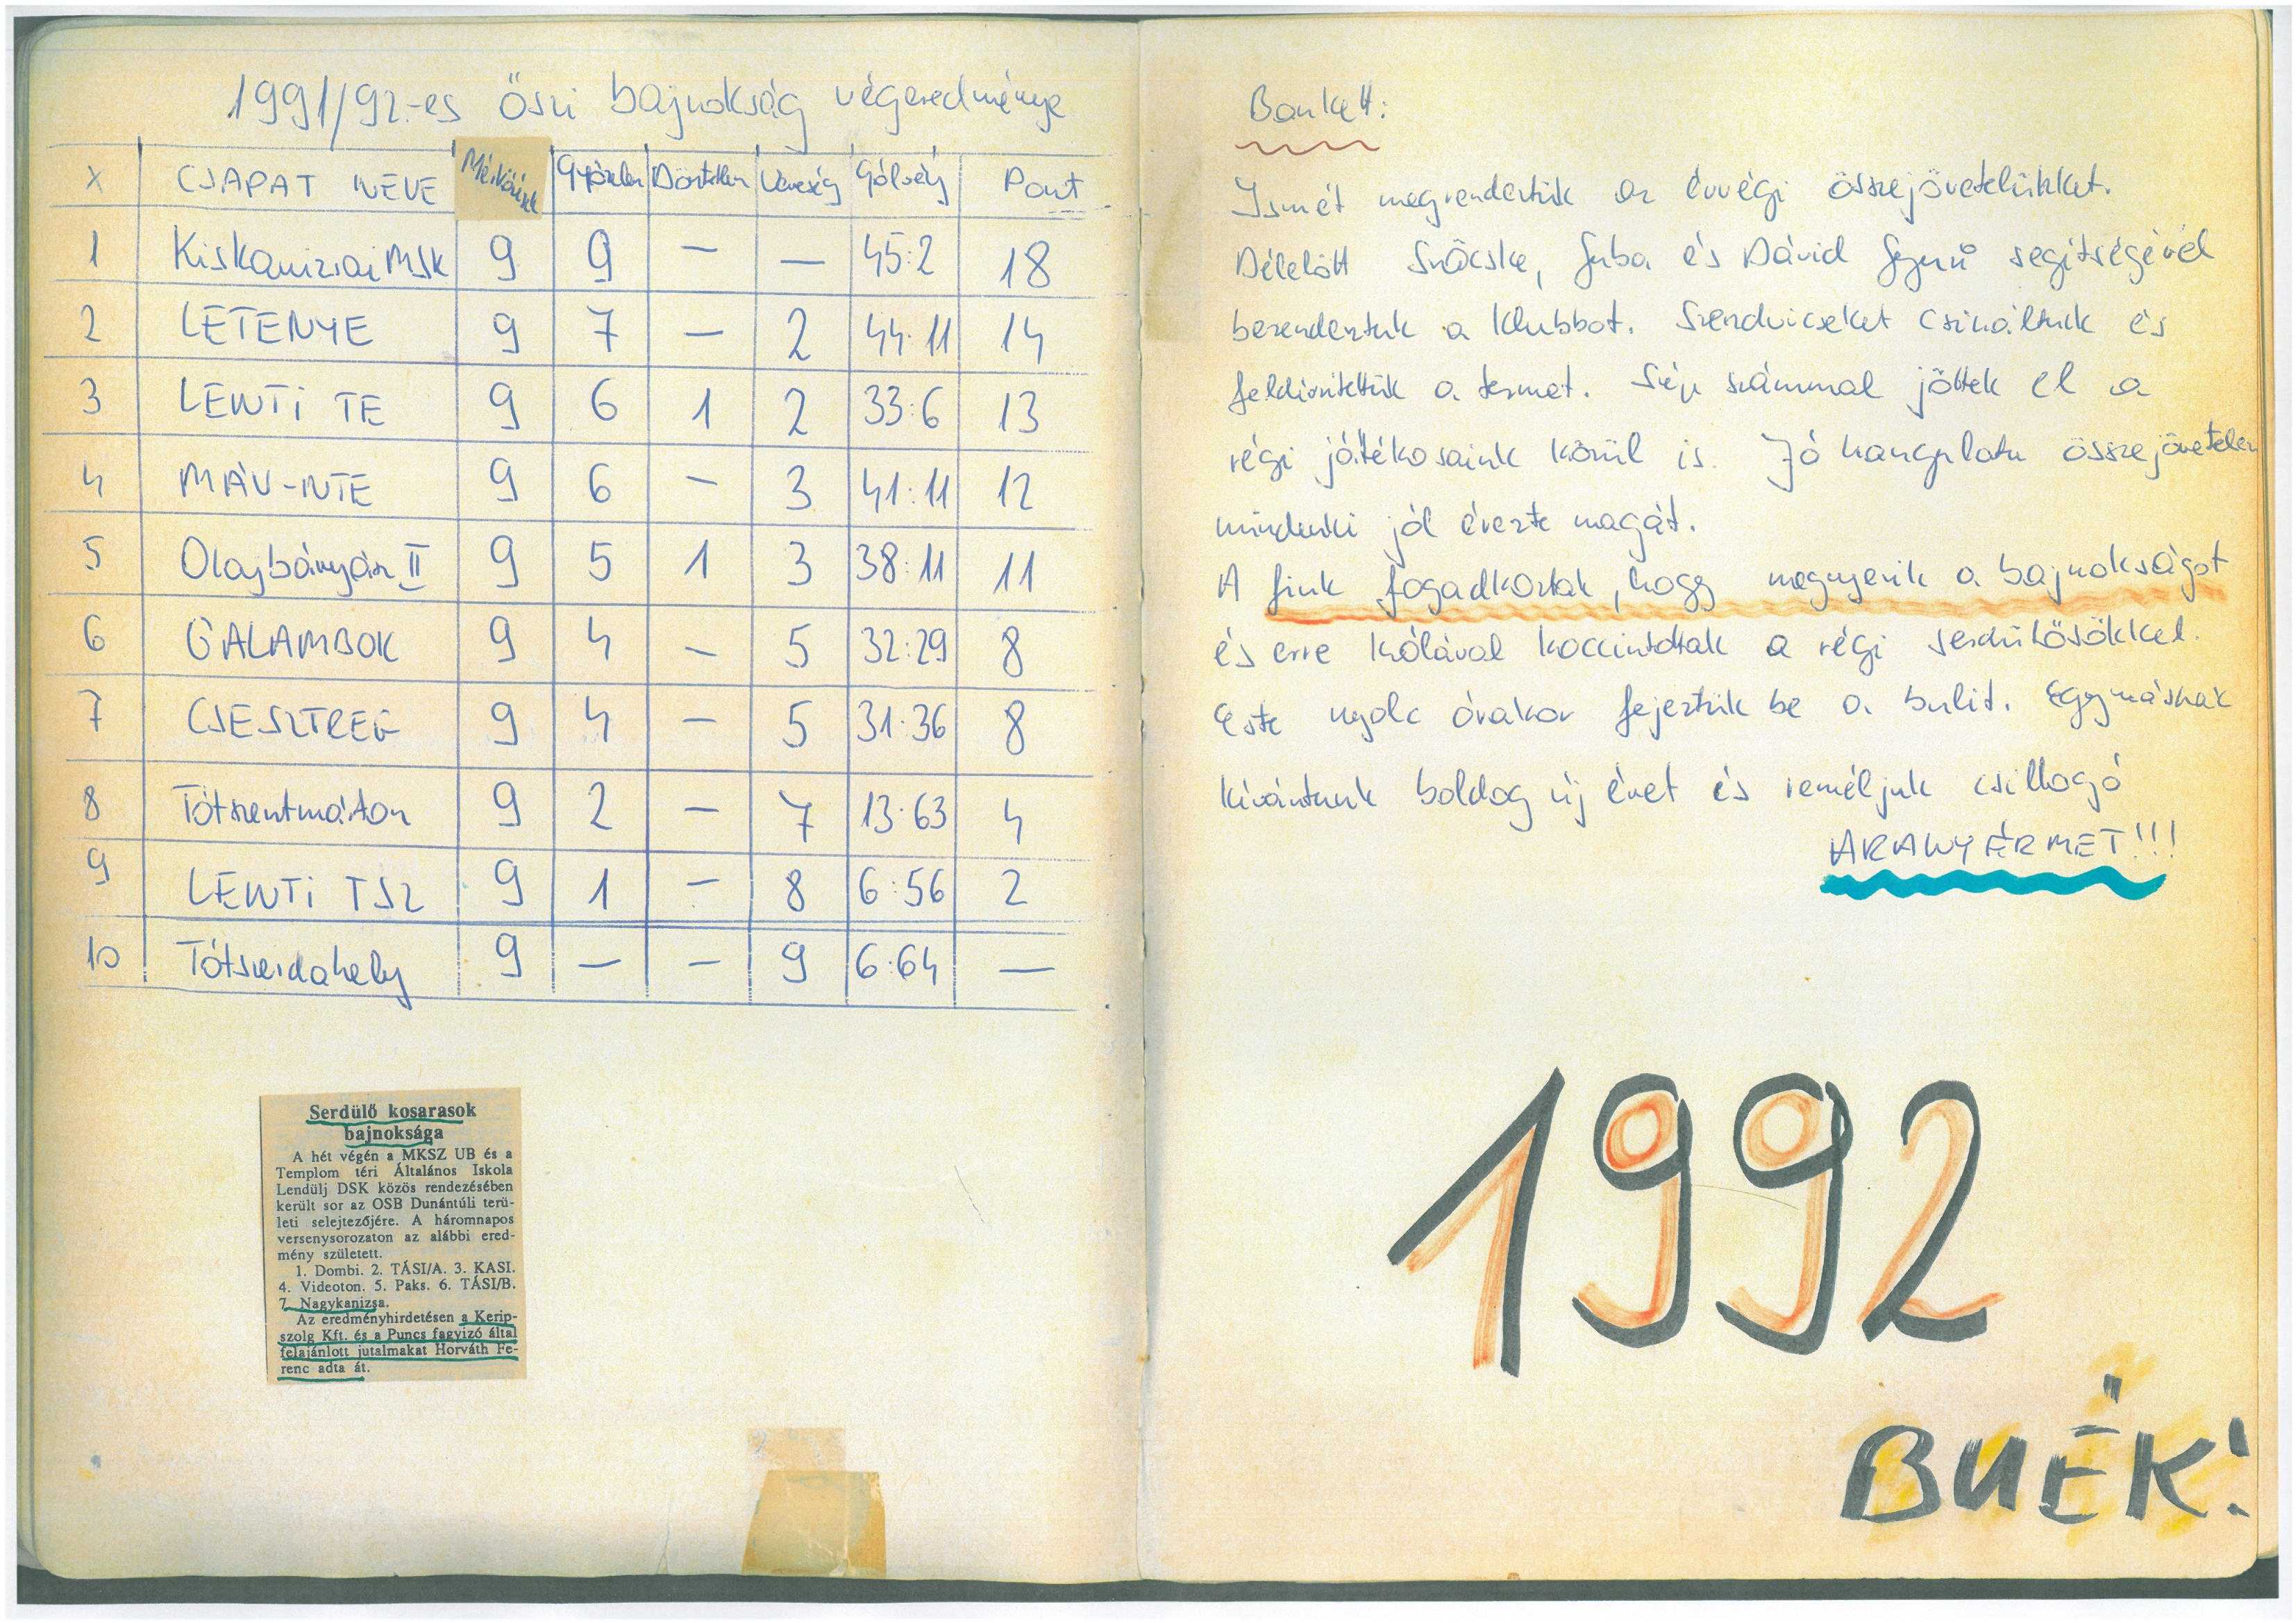 1991/92.-es őszi bajnokság végeredménye
X CSAPAT NEVE Mérkőzések Győzelem Döntetlen Vereség Gólarány Pont
1 Kiskanizsai MSK 9 9 — — 45:2 18
2 LETENYE 9 7 — 2 44:11 14
3 LENTI TE 9 6 1 2 33:6 13
4 MÁV-NTE 9 6 — 3 41:11 12
5 Olajbányász II 9 5 1 3 38:11 11
6 GALAMBOK 9 4 — 5 32:29 8
7 CSESZTREG 9 4 — 5 31:36 8
8 Tótszentmárton 9 2 — 7 13:63 4
9 LENTI TSZ 9 1 — 8 6:56 2
10 Tótszerdahely 9 — — 9 6:64 —
Serdülő kosarasok
bajnoksága
A hét végén a MKSZ UB és a
Templom téri Általános Iskola
Lendülj DSK közös rendezésében
került sor az OSB Dunántúli terü-
leti selejtezőjére. A háromnapos
versenysorozaton az alábbi ered-
mény született.
1. Dombi. 2. TÁSI/A. 3. KASI.
4. Videoton. 5. Paks. 6. TÁSI/B.
7. Nagykanizsa.
Az eredményhirdetésen a Kerip-
szolg Kft. és a Puncs fagyizó által
felajánlott jutalmakat Horváth Fe-
renc adta át.
Bankett:
Ismét megrendeztük az évvégi összejövetelünket.
Délelőtt Szőcske, és Dávid segítségével
berendeztük a klubbot. Szendvicseket csináltunk és
feldíszítettük a termet. Szép számmal jöttek el a
régi játékosaink közül is. Jó hangulatu összejövetelen
mindenki jól érezte magát.
A fiuk fogadkoztak, hogy megnyerik a bajnokságot
és erre kólával koccintottak a régi serdülősökkel.
Este nyolc órakor fejeztük be a bulit. Egymásnak
kívántunk boldog új évet és reméljük csillogó
ARANYÉRMET!!!
1992
BUÉK!